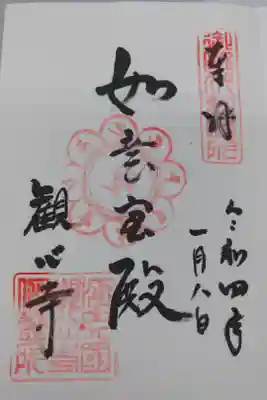 奉拝
令和四年
一月八日
如意宝殿
観心寺